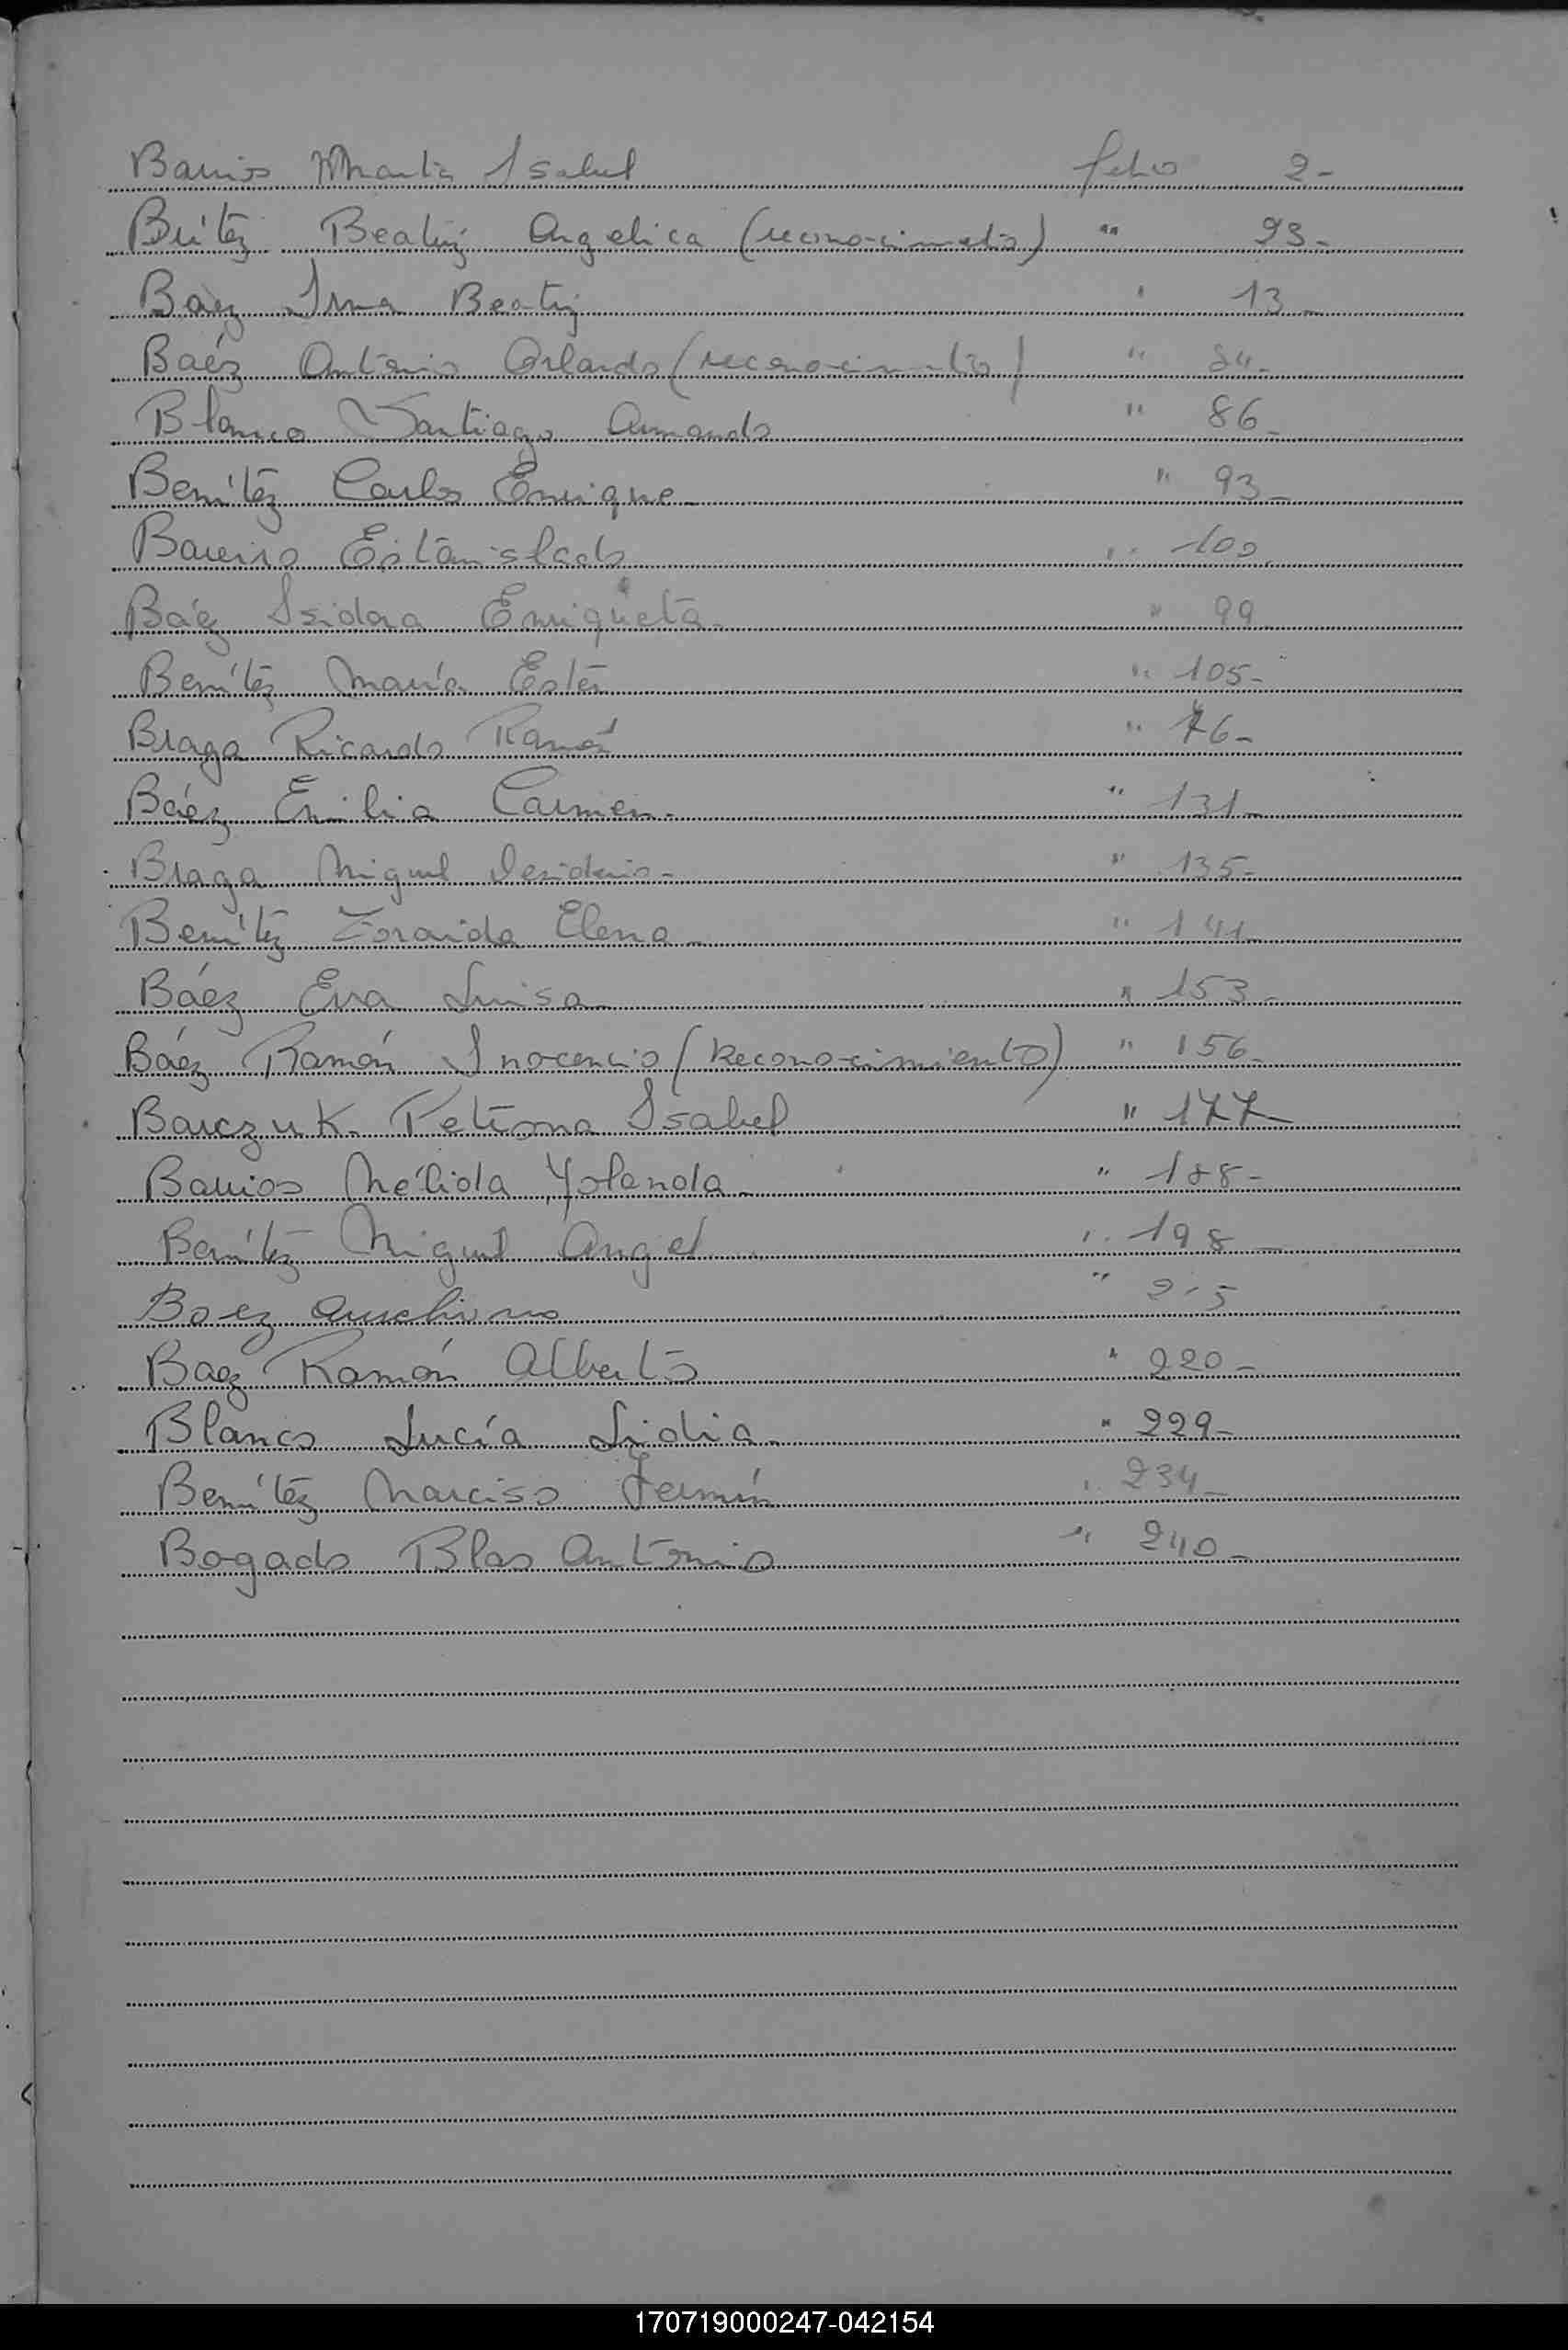 Barrios Marta Isabel folio 2-
Brítez Beatriz Angelica (reconocimiento) " 93-
Baez Irma Beatriz " 13-
Baéz Antonio Orlando (reconocimiento) " 24-
Blanco Santiago Armando " 86-
Benítez Carlos Enrique- " 93-
Barreiro Estanislado " 100
Báez Isidora Enriqueta- " 99
Benítez María Ester " 105-
Braga Ricardo Ramón " 76-
Báez Emilia Carmen- " 131-
Braga Miguel Desiderio- " 135-
Benítez Zoraida Elena- " 141-
Báez Eva Luisa " 153-
Báez Ramón Inocencio (Reconocimiento) " 156-
Barczuk Petrona Isabel " 177-
Barrios Nélida Yolanda- " 188-
Benítez Miguel Angel " 198-
Baez
Baez Ramón Alberto " 220-
Blanco Lucía Lidia- " 229-
Benítez Narciso Fermín " 234-
Bogado Blas Antonio " 240-
170719000247-042154